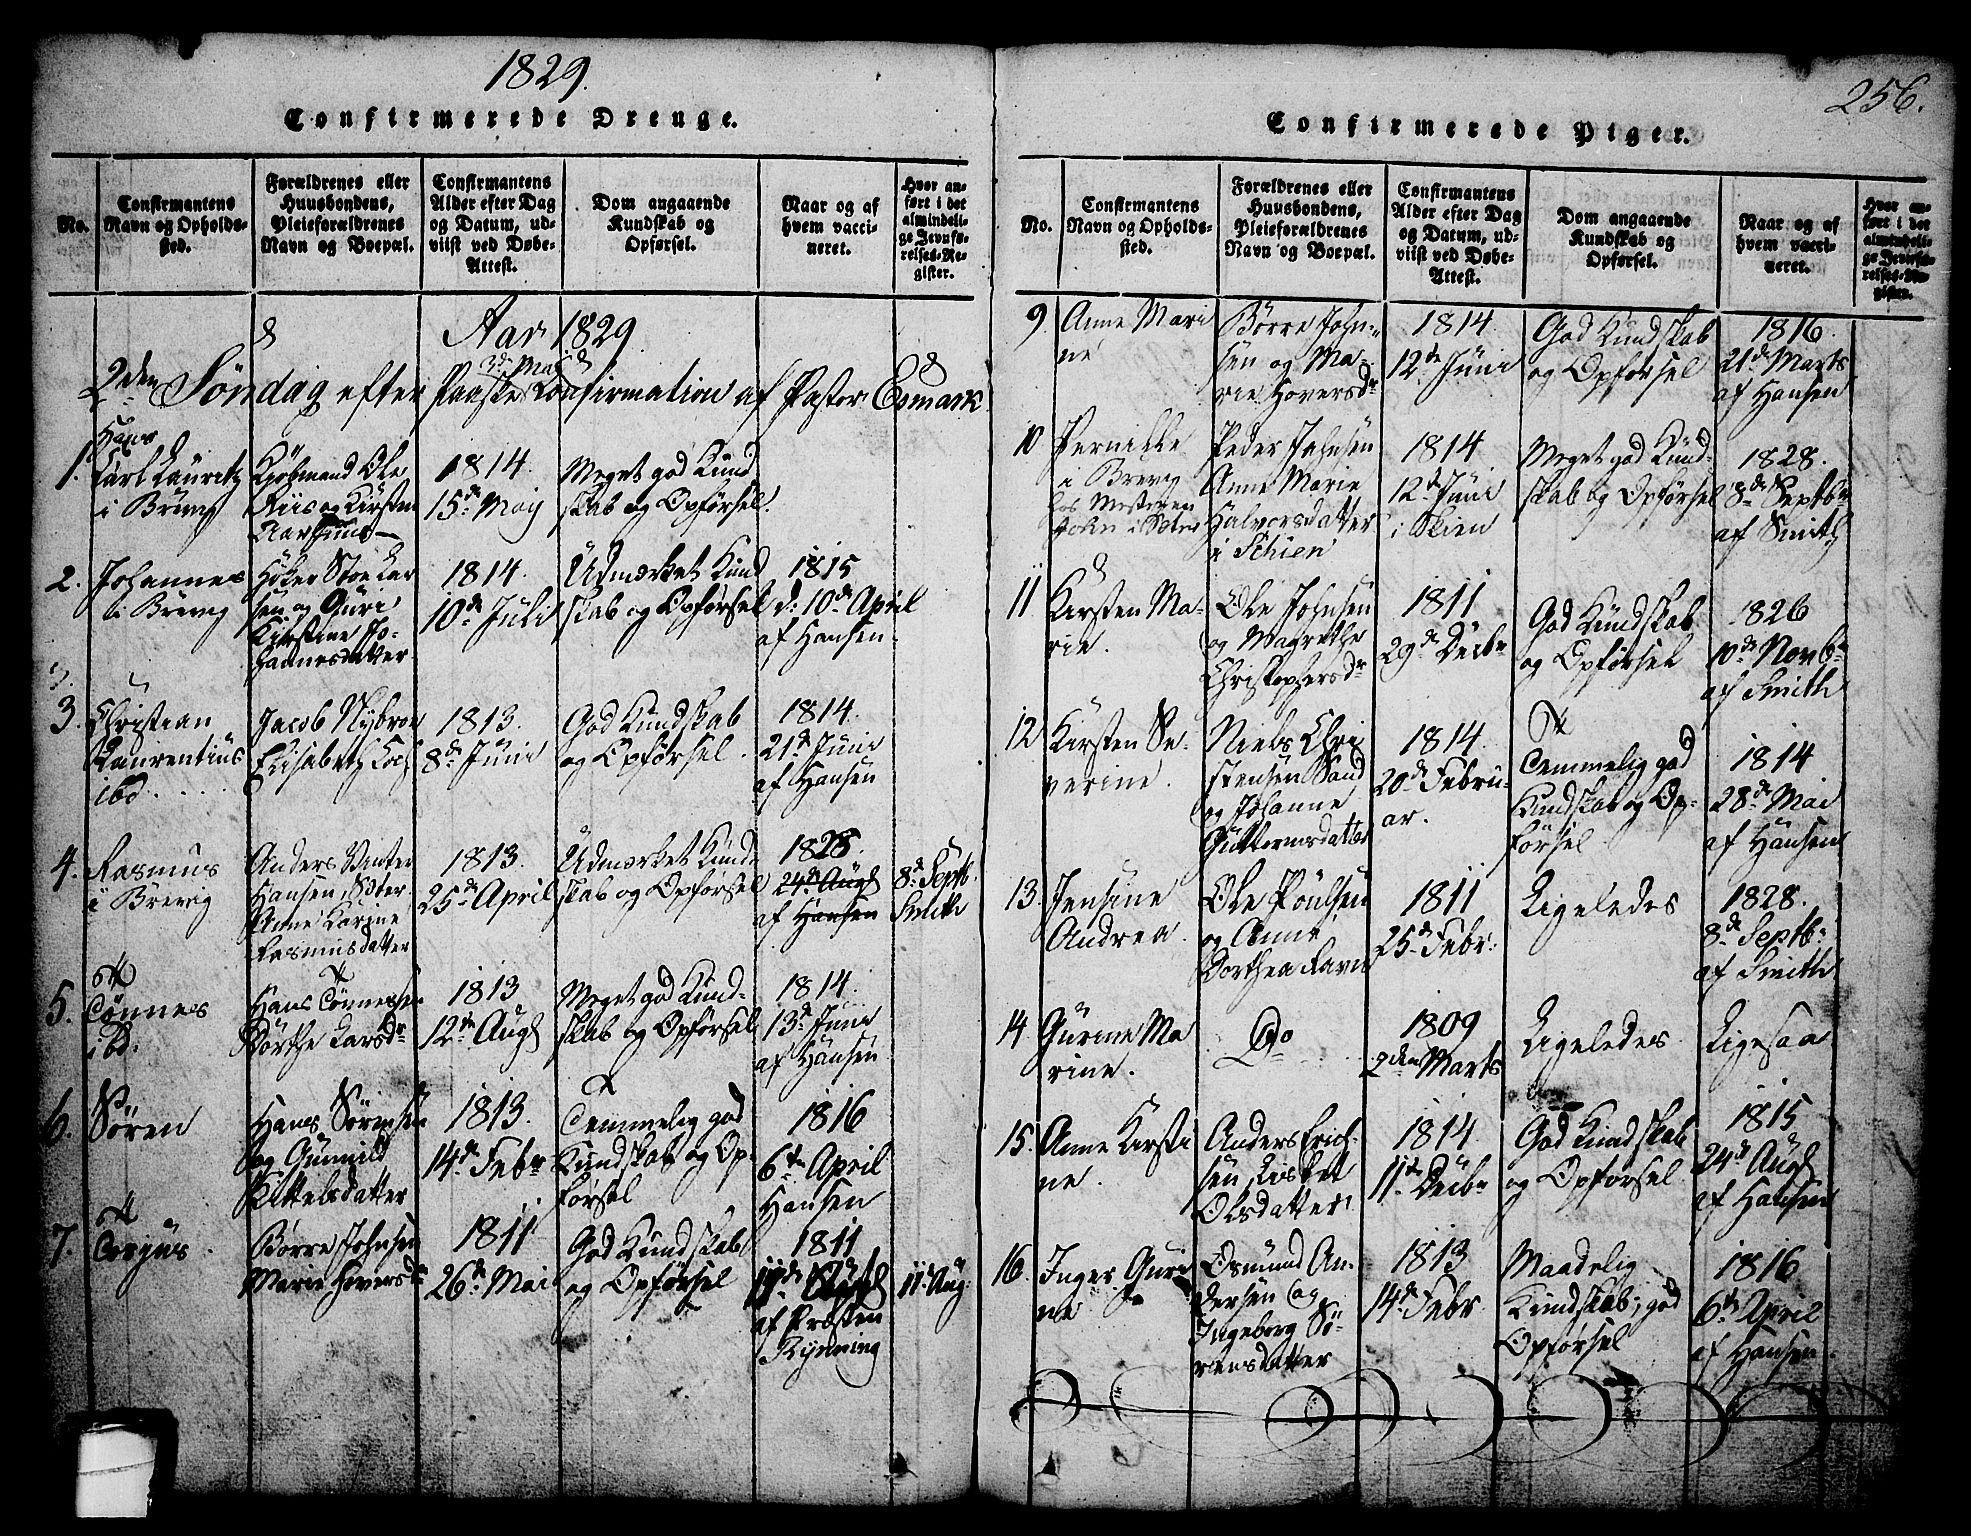 1829.
Confirmerede Drenge.
No.
Confirmantens
Navn og Opholds-
sted.
Forældrenes eller
Huusbondens,
Pleieforældrenes
Navn og Boepæl.
Confirmantens
Alder efter Dag
og Datum, ud-
viist ved Døbe-
Attest.
Dom angaaende
Kundskab og
Opførsel.
Naar og af
hvem vacci-
neret.
Hvor an-
ført i det
almindeli-
ge Jevnfø-
relses-Re-
gister.
Aar 1829
3de Mai
2den Søndag efter Paaske Confirmation af Pastor Esmark
1.
Hans
Carl Lauritz
i Brevig
Kjøbmand Ole
Riis og Kirsten
1814.
15de Maij
Meget god Kund
skab og Opførsel.
2.
Johannes
i Brevig
Høker Stoe Lar
sen og Guri
Kirstine Jo-
hannesdatter
1814.
10de Juli
Udmærket Kund
skab og Opførsel
1815
d: 10de April
af Hansen.
3.
Christian
Laurentius
ibd.
Jacob Nybroe
Elisabeth Koch
1813.
8de Juni
God Kundskab
og Opførsel.
1814.
21de Juni
af Hansen
4.
Rasmus
i Brevig
Anders Winter
Hansen Sæter
Anne Karine
Rasmusdatter
1813.
25de April
Udmærket Kund-
skab og Opførsel
1828.
24de Augs
af Hansen
8de Septb.
Smith
5.
Tønnes
ibd.
Hans Tønnesen
Dorthe Larsdr
1813
12te Augs
Meget god Kund-
skab og Opførsel
1814.
13de Juni
af Hansen
6.
Søren
Hans Sørensen
og Gunnild
Kittelsdatter
1813.
14de Febr
Temmelig god
Kundskab og Op-
førsel
1816
6te April
Hansen
7.
Terjus
Børre Johnsen
Marie Hoversdr
1811
26de Mai
God Kundskab
og Opførsel
1811
af Præsten
Rynning
11te Aug.
256.
Confirmerede Piger.
No.
Confirmantens
Navn og Opholds-
sted.
Forældrenes eller
Huusbondens,
Pleieforældrenes
Navn og Boepæl.
Confirmantens
Alder efter Dag
og Datum, ud-
viist ved Døbe-
Attest.
Dom angaaende
Kundskab og
Opførsel.
Naar og af
hvem vacci-
neret.
Hvor an-
ført i det
almindeli-
ge Jevnfø-
relses-Re-
gister.
9.
Anne Mari
ne
Børre John-
sen og Ma-
rie Hoversdr
1814.
12te Juni
God Kundskab
og Opførsel
1816.
21de Marts
af Hansen
10
Pernille
i Brevig
Peder Johnsen
Anne Marie
Halvorsdatter
i Schien
1814
12te Juni
i Skien
Meget god Kund-
skab og Opførsel
1828.
8de Septbr
af Smith
11
Kirsten Ma-
rie.
Ole Johnsen
og Magrethe
Christophersdr
1811
29de Decbr
God Kundskab
og Opførsel
1826
10de Novbr
af Smith
12
Kirsten Se-
verine.
Niels Chri
stensen Sand
og Johanne
Guttormsdatter
1814.
20de Febru-
ar.
Temmelig god
Kundskab og Op-
førsel
1814
28de Mai
af Hansen
13.
Jensine
Andrea.
Ole Poulsen
og Anne
Dorthea Ravn
1811
25de Febr.
Ligeledes
1828.
8de Septb.
af Smith
14.
Gurine Ma
rine.
Do
1809
2den Marts
Ligeledes
Ligesaa
15.
Anne Kirsti
ne.
Anders Erich-
sen, Lisbet
Olsdatter
1814
11te Decbr
God Kundskab
og Opførsel
1815
24de Augs
af Hansen
16.
Inger Guri
ne
Osmund An-
dersen og
Ingeborg Sø-
rensdatter
1813
14de Febr
Maadelig
Kundskab, god
Opførsel
1816
6te April
af Hansen.